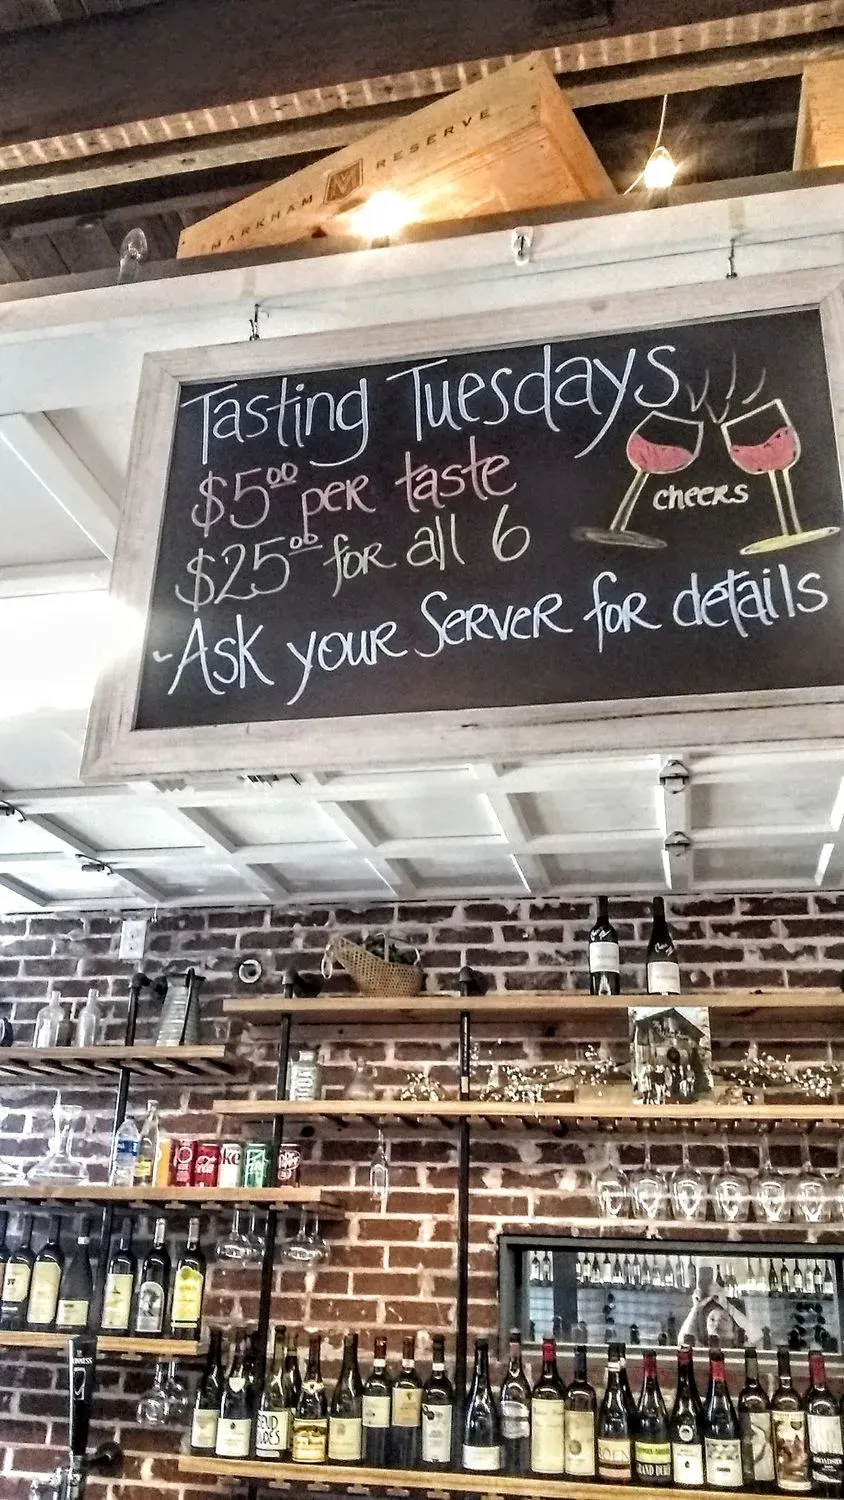 MARKHAM M RESERVE
Tasting Tuesdays
$5.00 per taste
$25.00 for all 6
cheers
-Ask your Server for details
GUINNESS